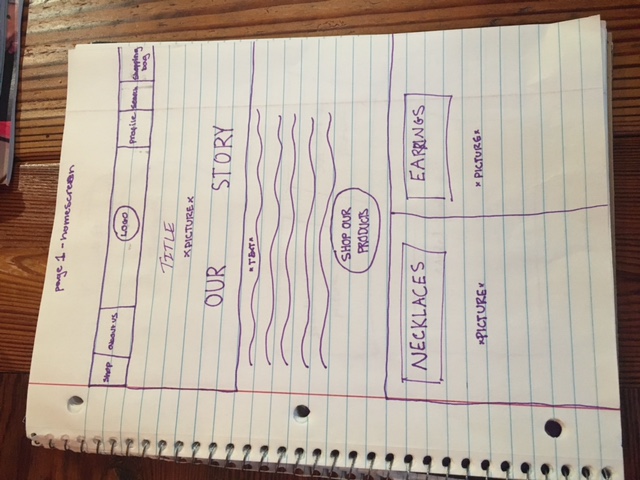 page 1 - homescreen
shop about us LOGO profile search shopping bag
TITLE
*PICTURE*
OUR STORY
*TEXT*
SHOP OUR
PRODUCTS
NECKLACES EARRINGS
*PICTURE* *PICTURE*